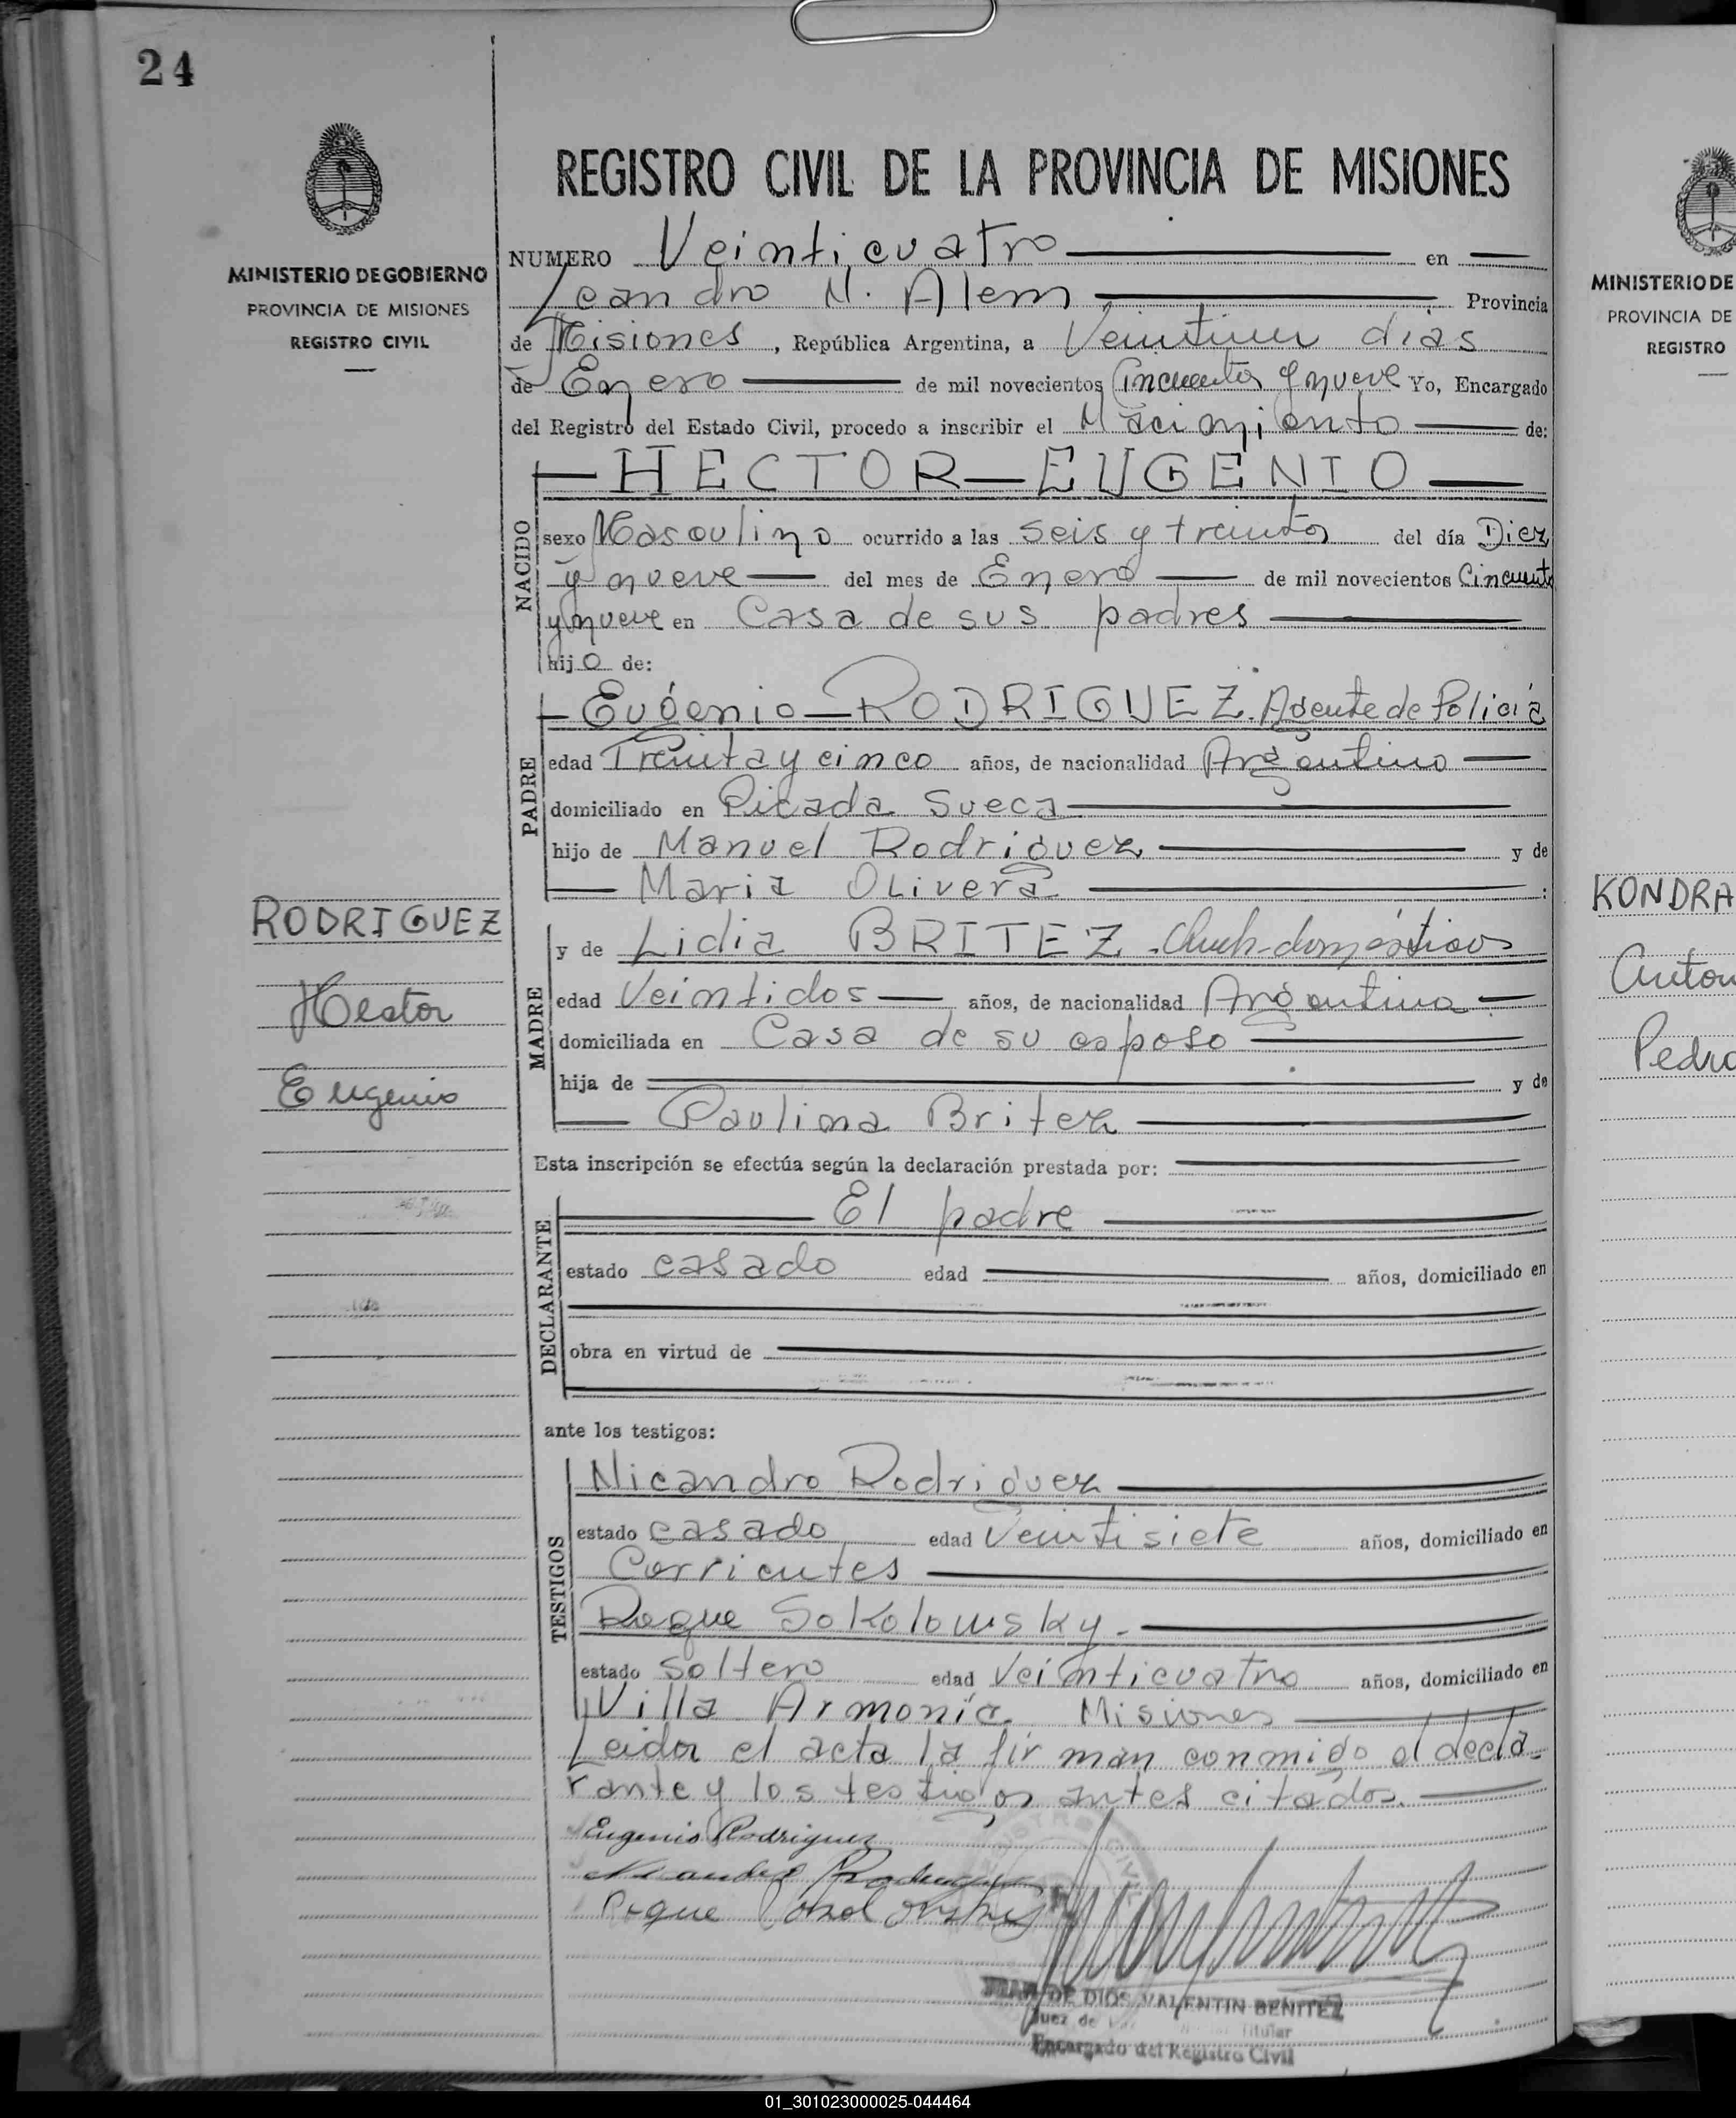 24
MINISTERIO DE GOBIERNO
PROVINCIA DE MISIONES
REGISTRO CIVIL
REGISTRO CIVIL DE LA PROVINCIA DE MISIONES
NUMERO Veinticuatro en
Leandro N. Alem Provincia
de Misiones, República Argentina, a Veintiun dias
de Enero de mil novecientos Cincuenta y nueve Yo, Encargado
del Registro del Estado Civil, procedo a inscribir el Nacimiento de:
HECTOR EUGENIO
NACIDO
sexo Masculino ocurrido a las seis y treinta del día Diez
y nueve del mes de Enero de mil novecientos Cincuenta
y nueve en Casa de sus padres
hijo de:
PADRE
Eugenio RODRIGUEZ. Agente de Policia
edad Treinta y cinco años, de nacionalidad Argentino
domiciliado en Picada Sueca
hijo de Manuel Rodriguez y de
Maria Olivera :
RODRIGUEZ
Hector
Eugenio
MADRE
y de Lidia BRITEZ
edad Veintidos años, de nacionalidad Argentina
domiciliada en Casa de su esposo
hija de y de
Paulina Britez
Esta inscripción se efectúa según la declaración prestada por:
DECLARANTE
El padre
estado casado edad años, domiciliado en
obra en virtud de
ante los testigos:
TESTIGOS
Nicandro Rodriguez
estado casado edad Veintisiete años, domiciliado en
Corrientes
Roque Sokolowsky.
estado soltero edad Veinticuatro años, domiciliado en
Villa Armonia Misiones
Leida el acta la firman conmigo el decla-
rante y los testigos antes citados.
Eugenio Rodriguez
Nicandro Rodriguez
Roque Sokolowsky
JUAN DE DIOS VALENTIN BENITEZ
Juez de Paz Titular
Encargado del Registro Civil
MINISTERIO DE
PROVINCIA DE
REGISTRO
KONDRA
Anton
Pedro
01_301023000025-044464